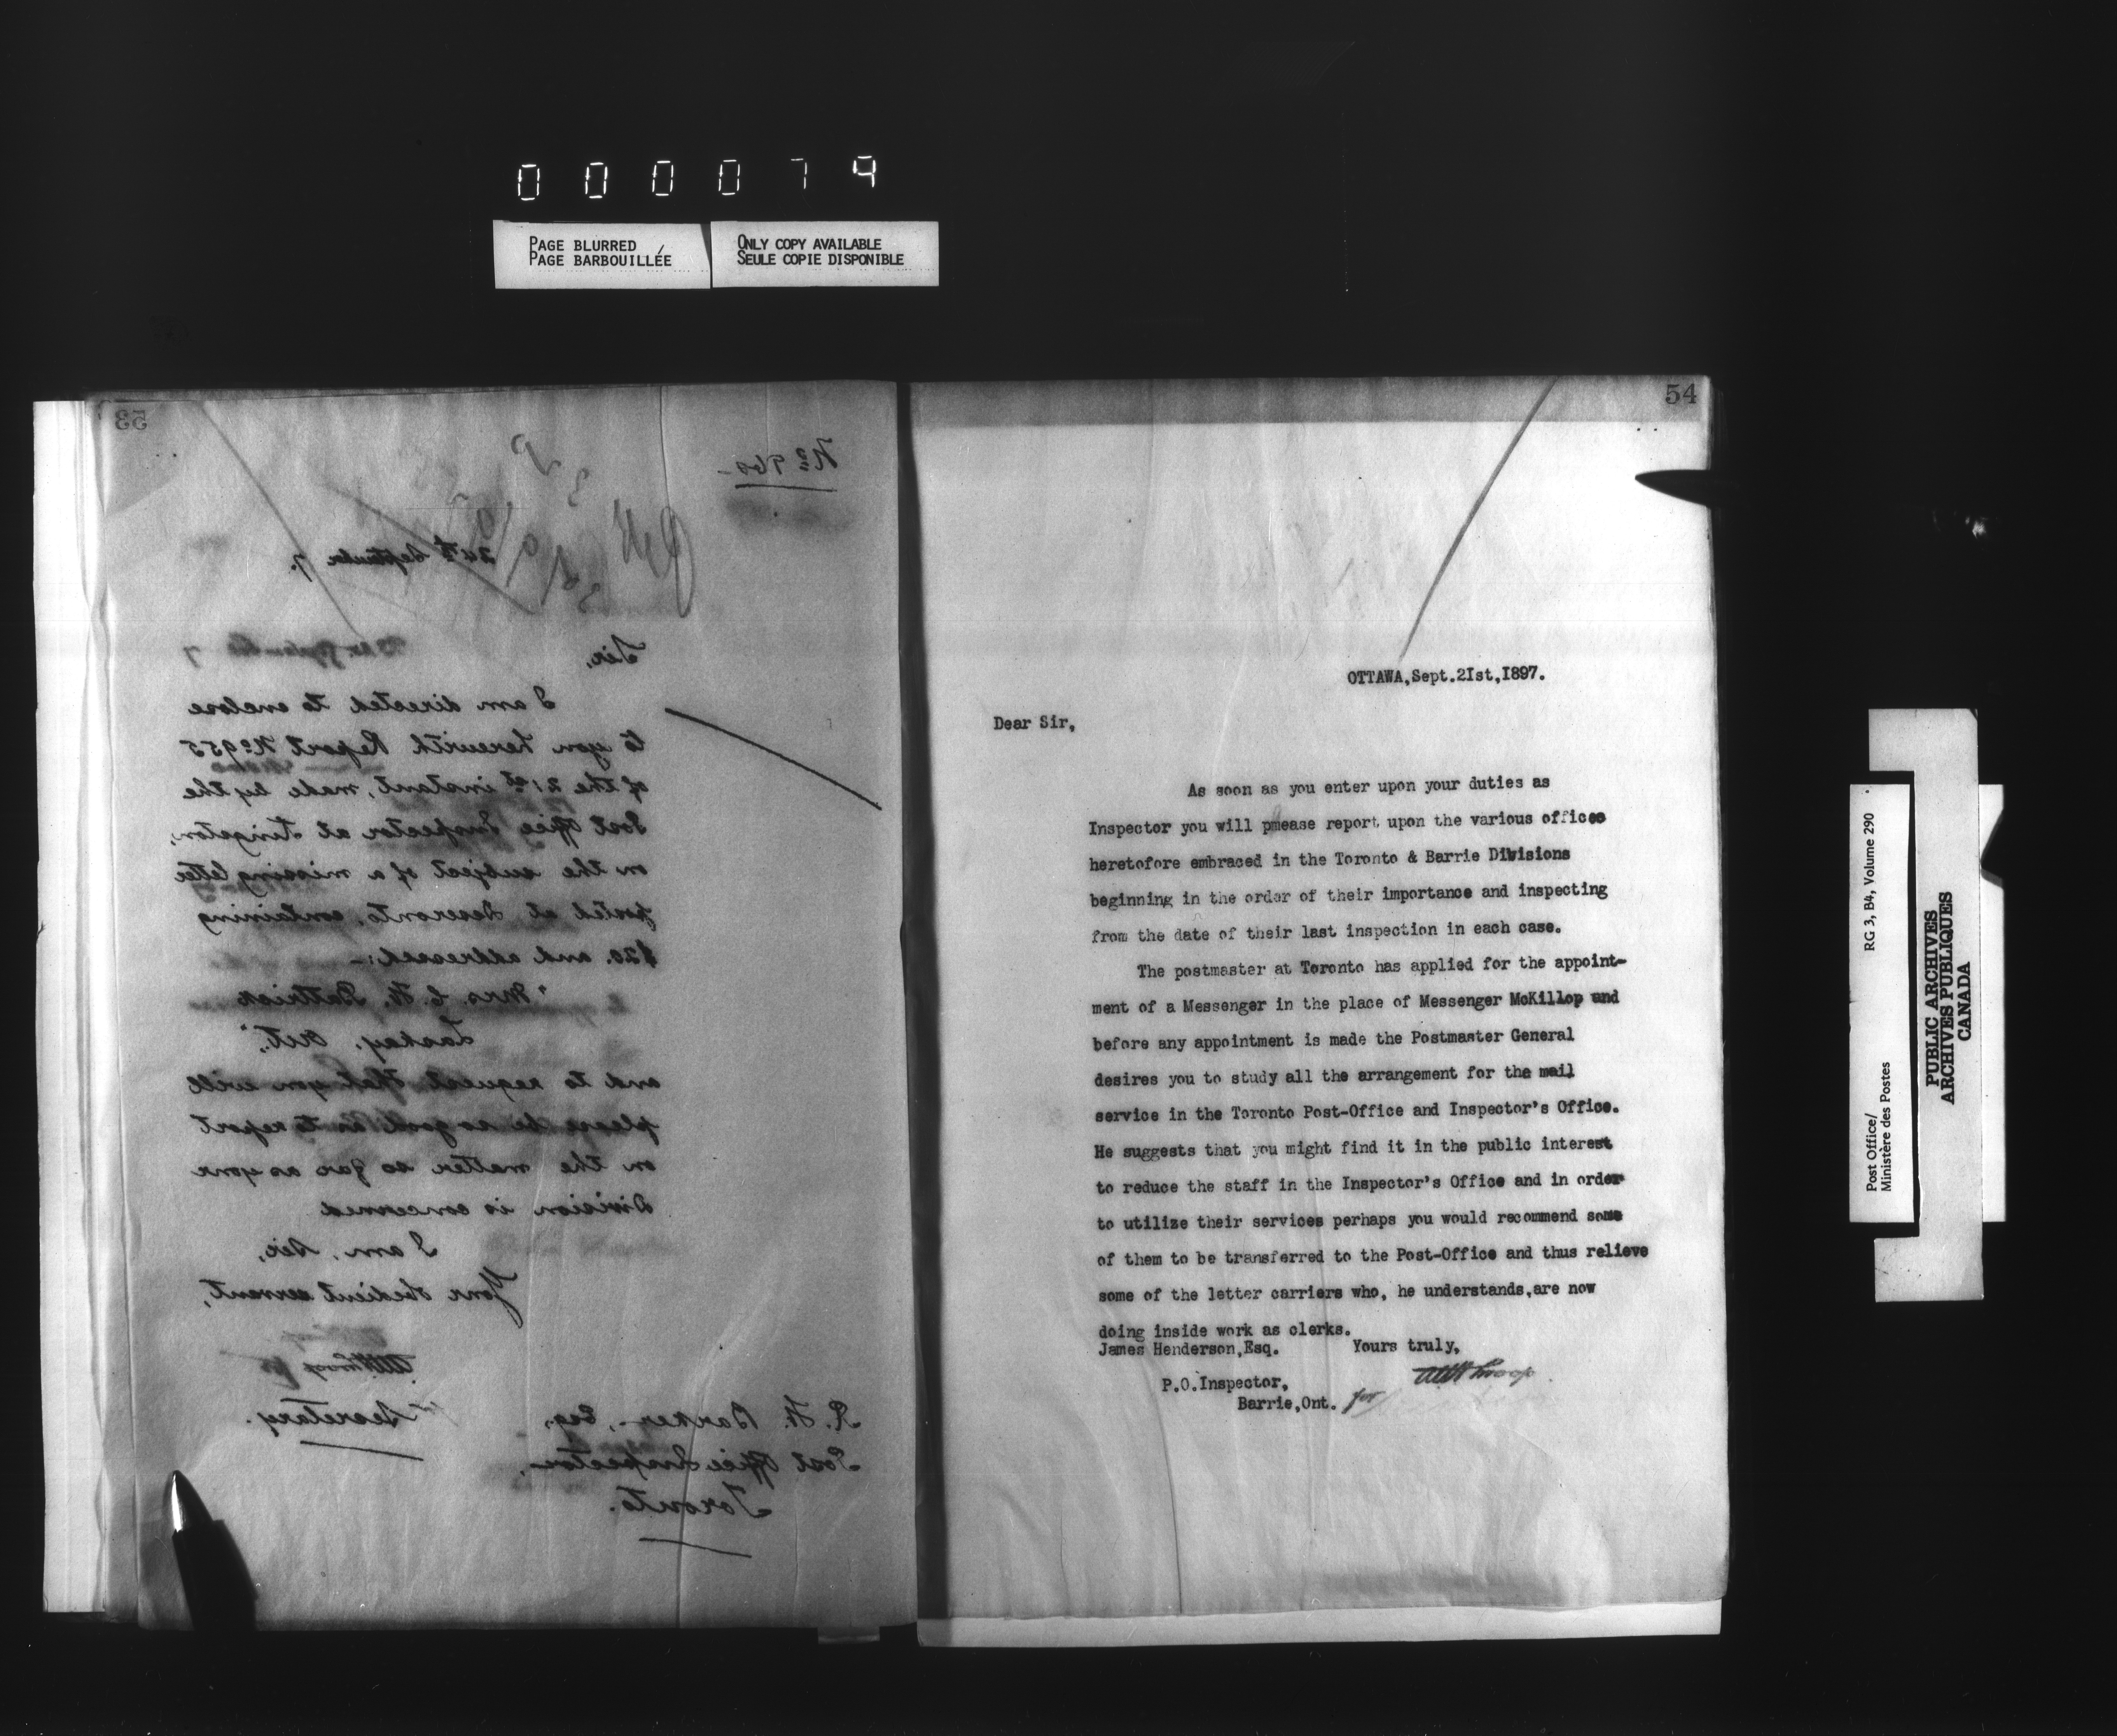 000079
PAGE BLURRED
PAGE BARBOUILLÉE
ONLY COPY AVAILABLE
SEULE COPIE DISPONIBLE
53
No 960
24th September 7.
Sir,
I am directed to enclose
to you herewith Report No 955
of the 21st instant, made by the
Post Office Inspector at Kingston,
on the subject of a missing letter
posted at Deseronto, containing
$20. and addressed:-
"Mrs C. H. Pattrick
Laskay, Ont.",
and to request that you will
please be so good as to report
on the matter so far as your
Division is concerned
I am, Sir,
Your obedient servant,
for
Secretary.
R. H. Barker, Esq.,
Post Office Inspector,
Toronto.
54
OTTAWA,Sept.2Ist,I897.
Dear Sir,
As soon as you enter upon your duties as
Inspector you will pmease report upon the various offices
heretofore embraced in the Toronto & Barrie Divisions
beginning in the order of their importance and inspecting
from the date of their last inspection in each case.
The postmaster at Toronto has applied for the appoint-
ment of a Messenger in the place of Messenger McKillop and
before any appointment is made the Postmaster General
desires you to study all the arrangement for the mail
service in the Toronto Post-Office and Inspector's Office.
He suggests that you might find it in the public interest
to reduce the staff in the Inspector's Office and in order
to utilize their services perhaps you would recommend some
of them to be transferred to the Post-Office and thus relieve
some of the letter carriers who, he understands,are now
doing inside work as clerks.
James Henderson,Esq. Yours truly,
P.O.Inspector,
Barrie,Ont. for
Post Office/
Ministère des Postes
RG 3, B4, Volume 290
PUBLIC ARCHIVES
ARCHIVES PUBLIQUES
CANADA